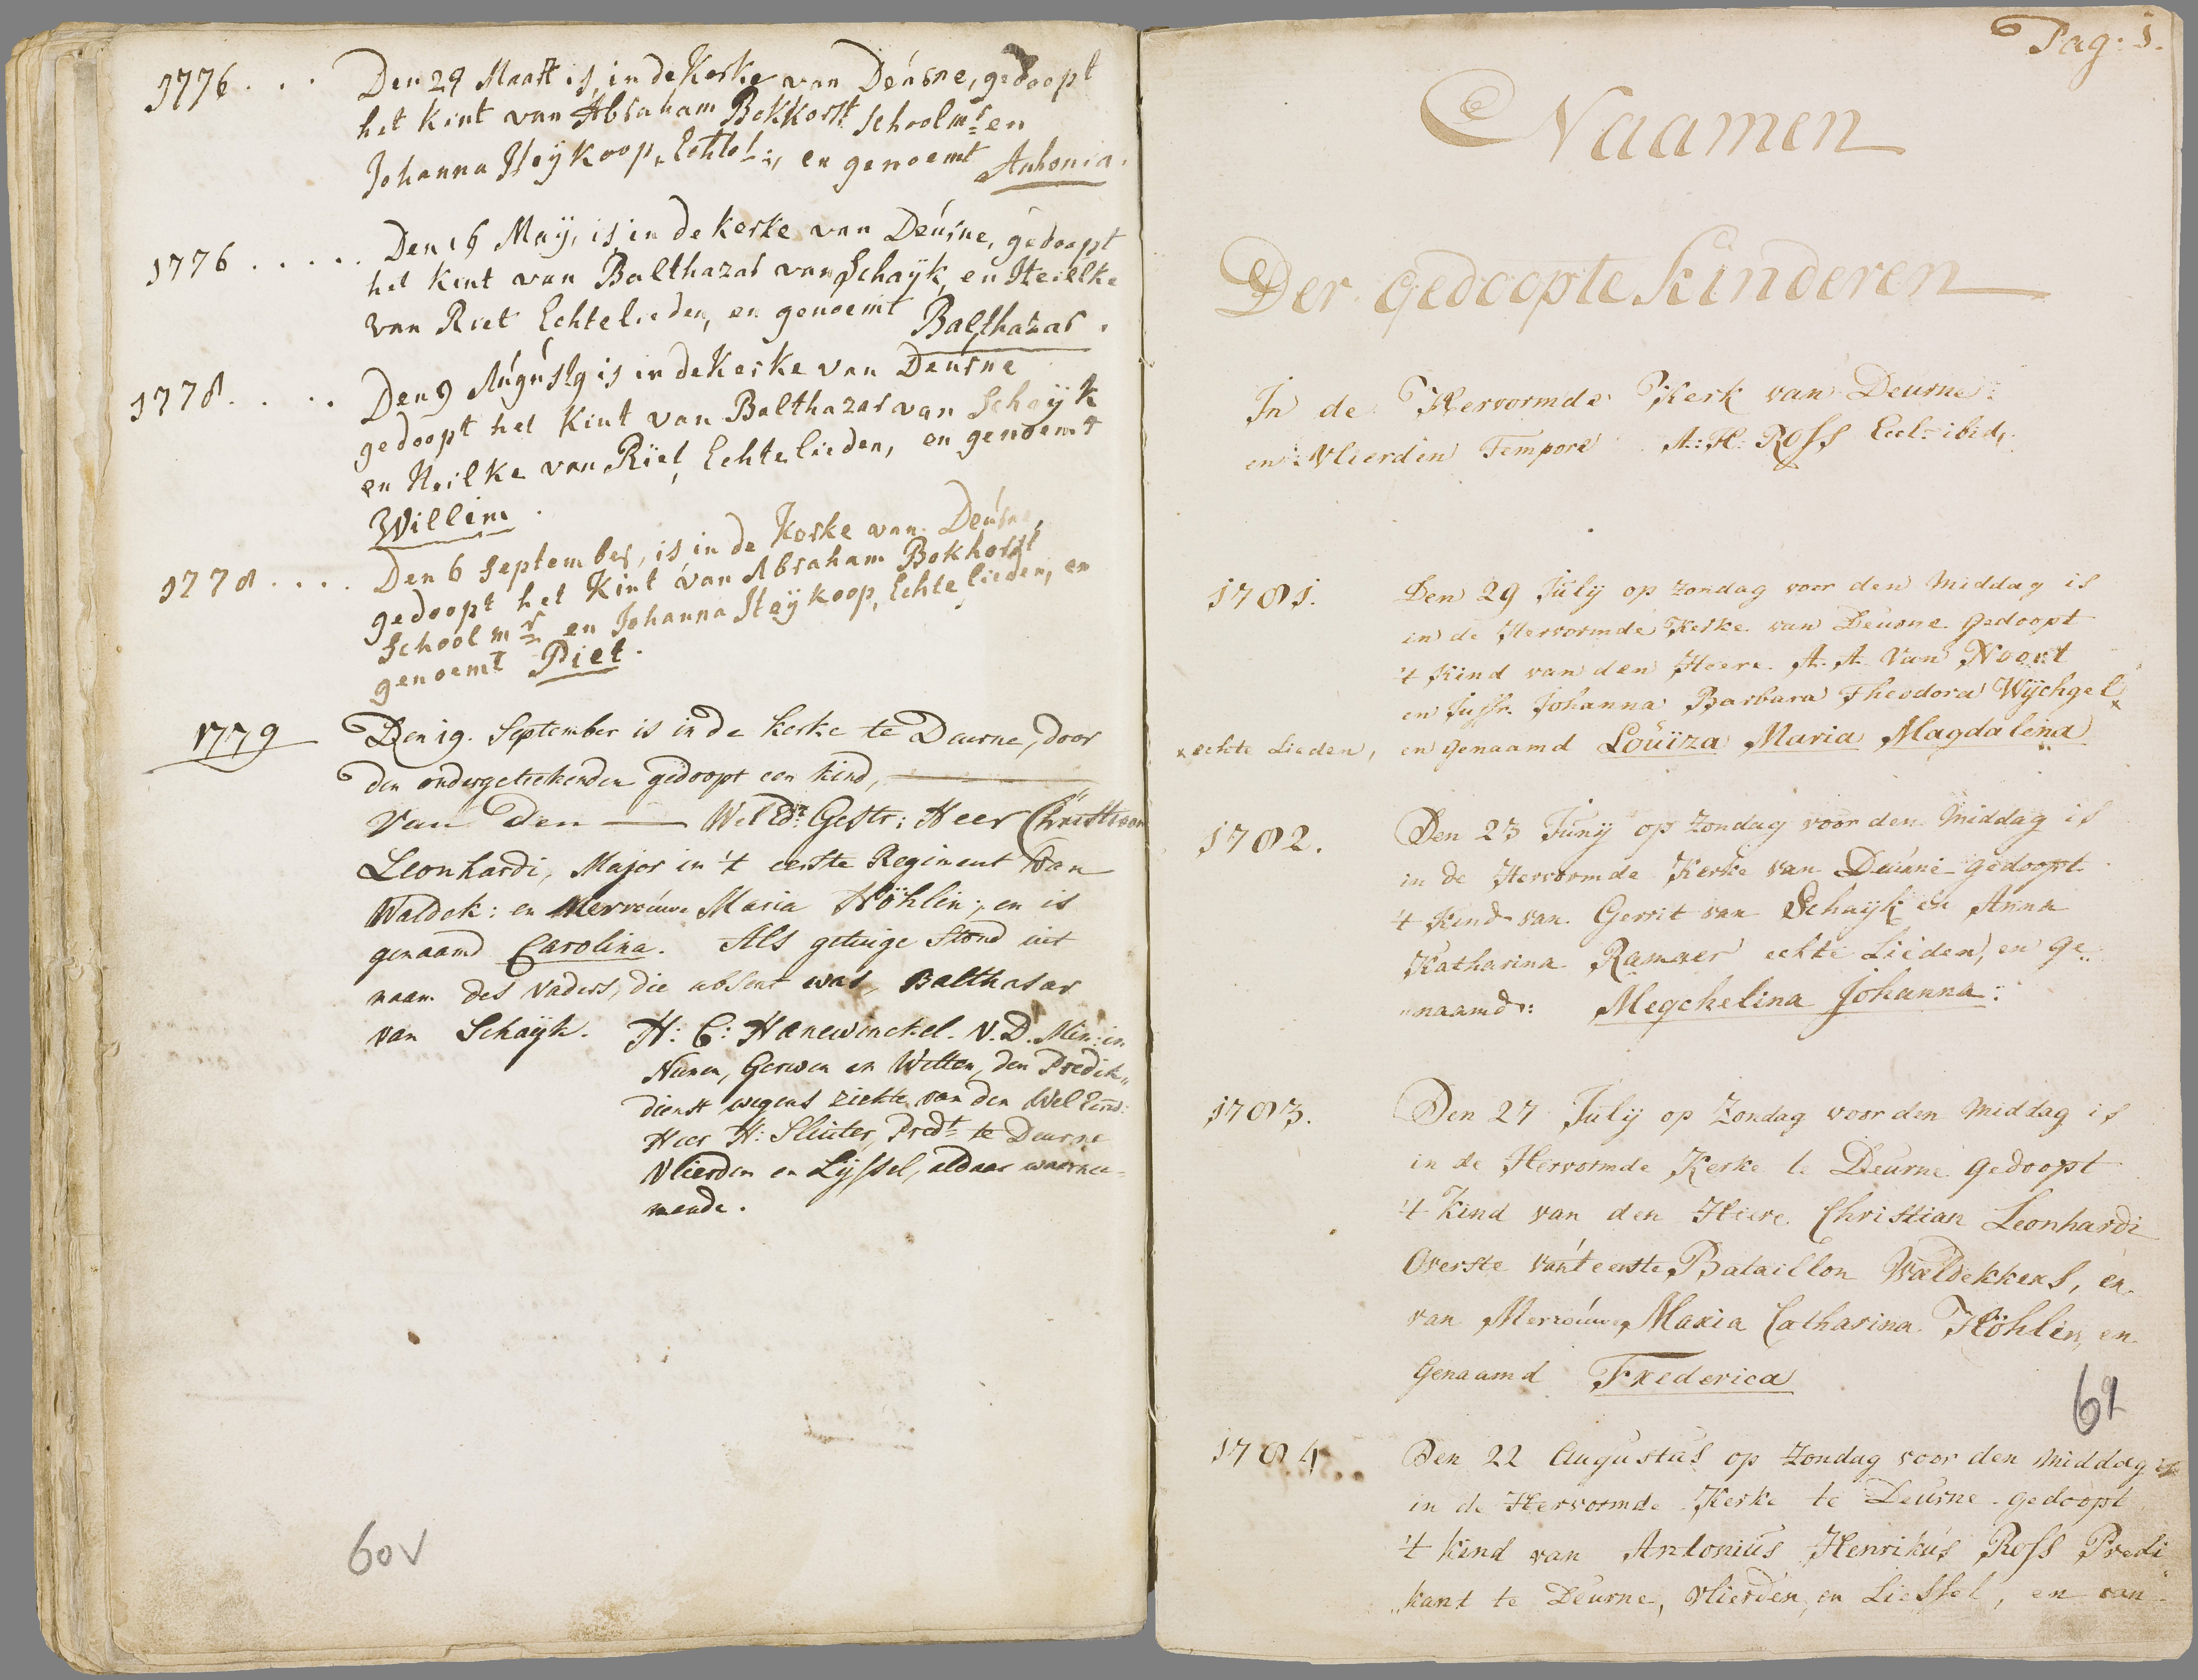 1776 . . . Den 29 Maart is, in de Kerke van Deúrne, gedoopt
het kint van Abraham Bokkorst Schoolmr: en
Johanna Heÿkoop, Echtel:, en genoemt Anthonia.
1776 . . . . . Den 16 Maÿ, is in de kerke van Deúrne, gedoopt
het kint van Balthazar van Schaÿk, en Heilke
van Riet Echtelieden, en genoemt Balthazar.
1778 . . . . Den 9 Aúgústq is in de Kerke van Deúrne
gedoopt het Kint van Balthazar van Schaÿk
en Heilke van Riet, Echtelieden, en genoemt
Willem.
1778 . . . . Den 6 September, is in de Kerke van Deúrne,
gedoopt het Kint van Abraham Bokhorst
Schoolmr en Johanna Heÿkoop, Echtelieden, en
genoemt Piet.
1779 Den 19. September is in de kerke te Deurne, door
den ondergetekenden gedoopt een kind, ———
Van Den —— Wel Edr: Gestr: Heer Christiaan
Leonhardi, Major in 't eerste Regiment van
Waldek: en Mervoúwe Maria Höhlin; en is
genaamd Carolina. Als getuige stond uit
naam des vaders, die absent was, Balthasar
van Schaÿk. H: C: Hanewinckel. V. D. Min: in
Nunen, Gerwen en Wetten, den Predik„
dienst wegens ziekte van den Wel Eerw:
Heer H: Sluiter, Predt te Deurne
Vlierden en Lyssel, aldaar waarnee-
mende.
60v
Pag: 1.
Naamen
Der Gedoopte Kinderen
In de Hervormde Kerk van Deurne
en Vlierden Tempore A: H: Ross Eccl: ibid,.
1781. Den 29 Julÿ op zondag voor den Middag is
in de Hervormde Kerke van Deurne Gedoopt
't Kind van den Heere A. A. Van Noort
en Juffr. Johanna Barbara Theodora Wÿchgel x
x echte Lieden, en genaamd Loüiza Maria Magdalena
1782. Den 23 Junÿ op zondag voor den Middag is
in de Hervormde Kerke van Deurne Gedoopt
't Kind van Gerrit van Schaÿk en Anna
Katharina Ramaer echte Lieden, en ge„
„naamd: Megchelina Johanna:
1783. Den 27 Julÿ op Zondag voor den Middag is
in de Hervormde Kerke te Deurne Gedoopt
't Kind van den Heere Christian Leonhardi
Overste van't eerste Bataillon Waldekkers, en
van Mervoúwe Maria Catharina Höhlin, en
Genaamd Frederica
61
1784 . . Den 22 Augustus op Zondag voor den Middag is
in de Hervormde Kerke te Deurne gedoopt
't kind van Antonius Henrikus Ross Predi„
„kant te Deurne, Vlierden, en Liessel, en van